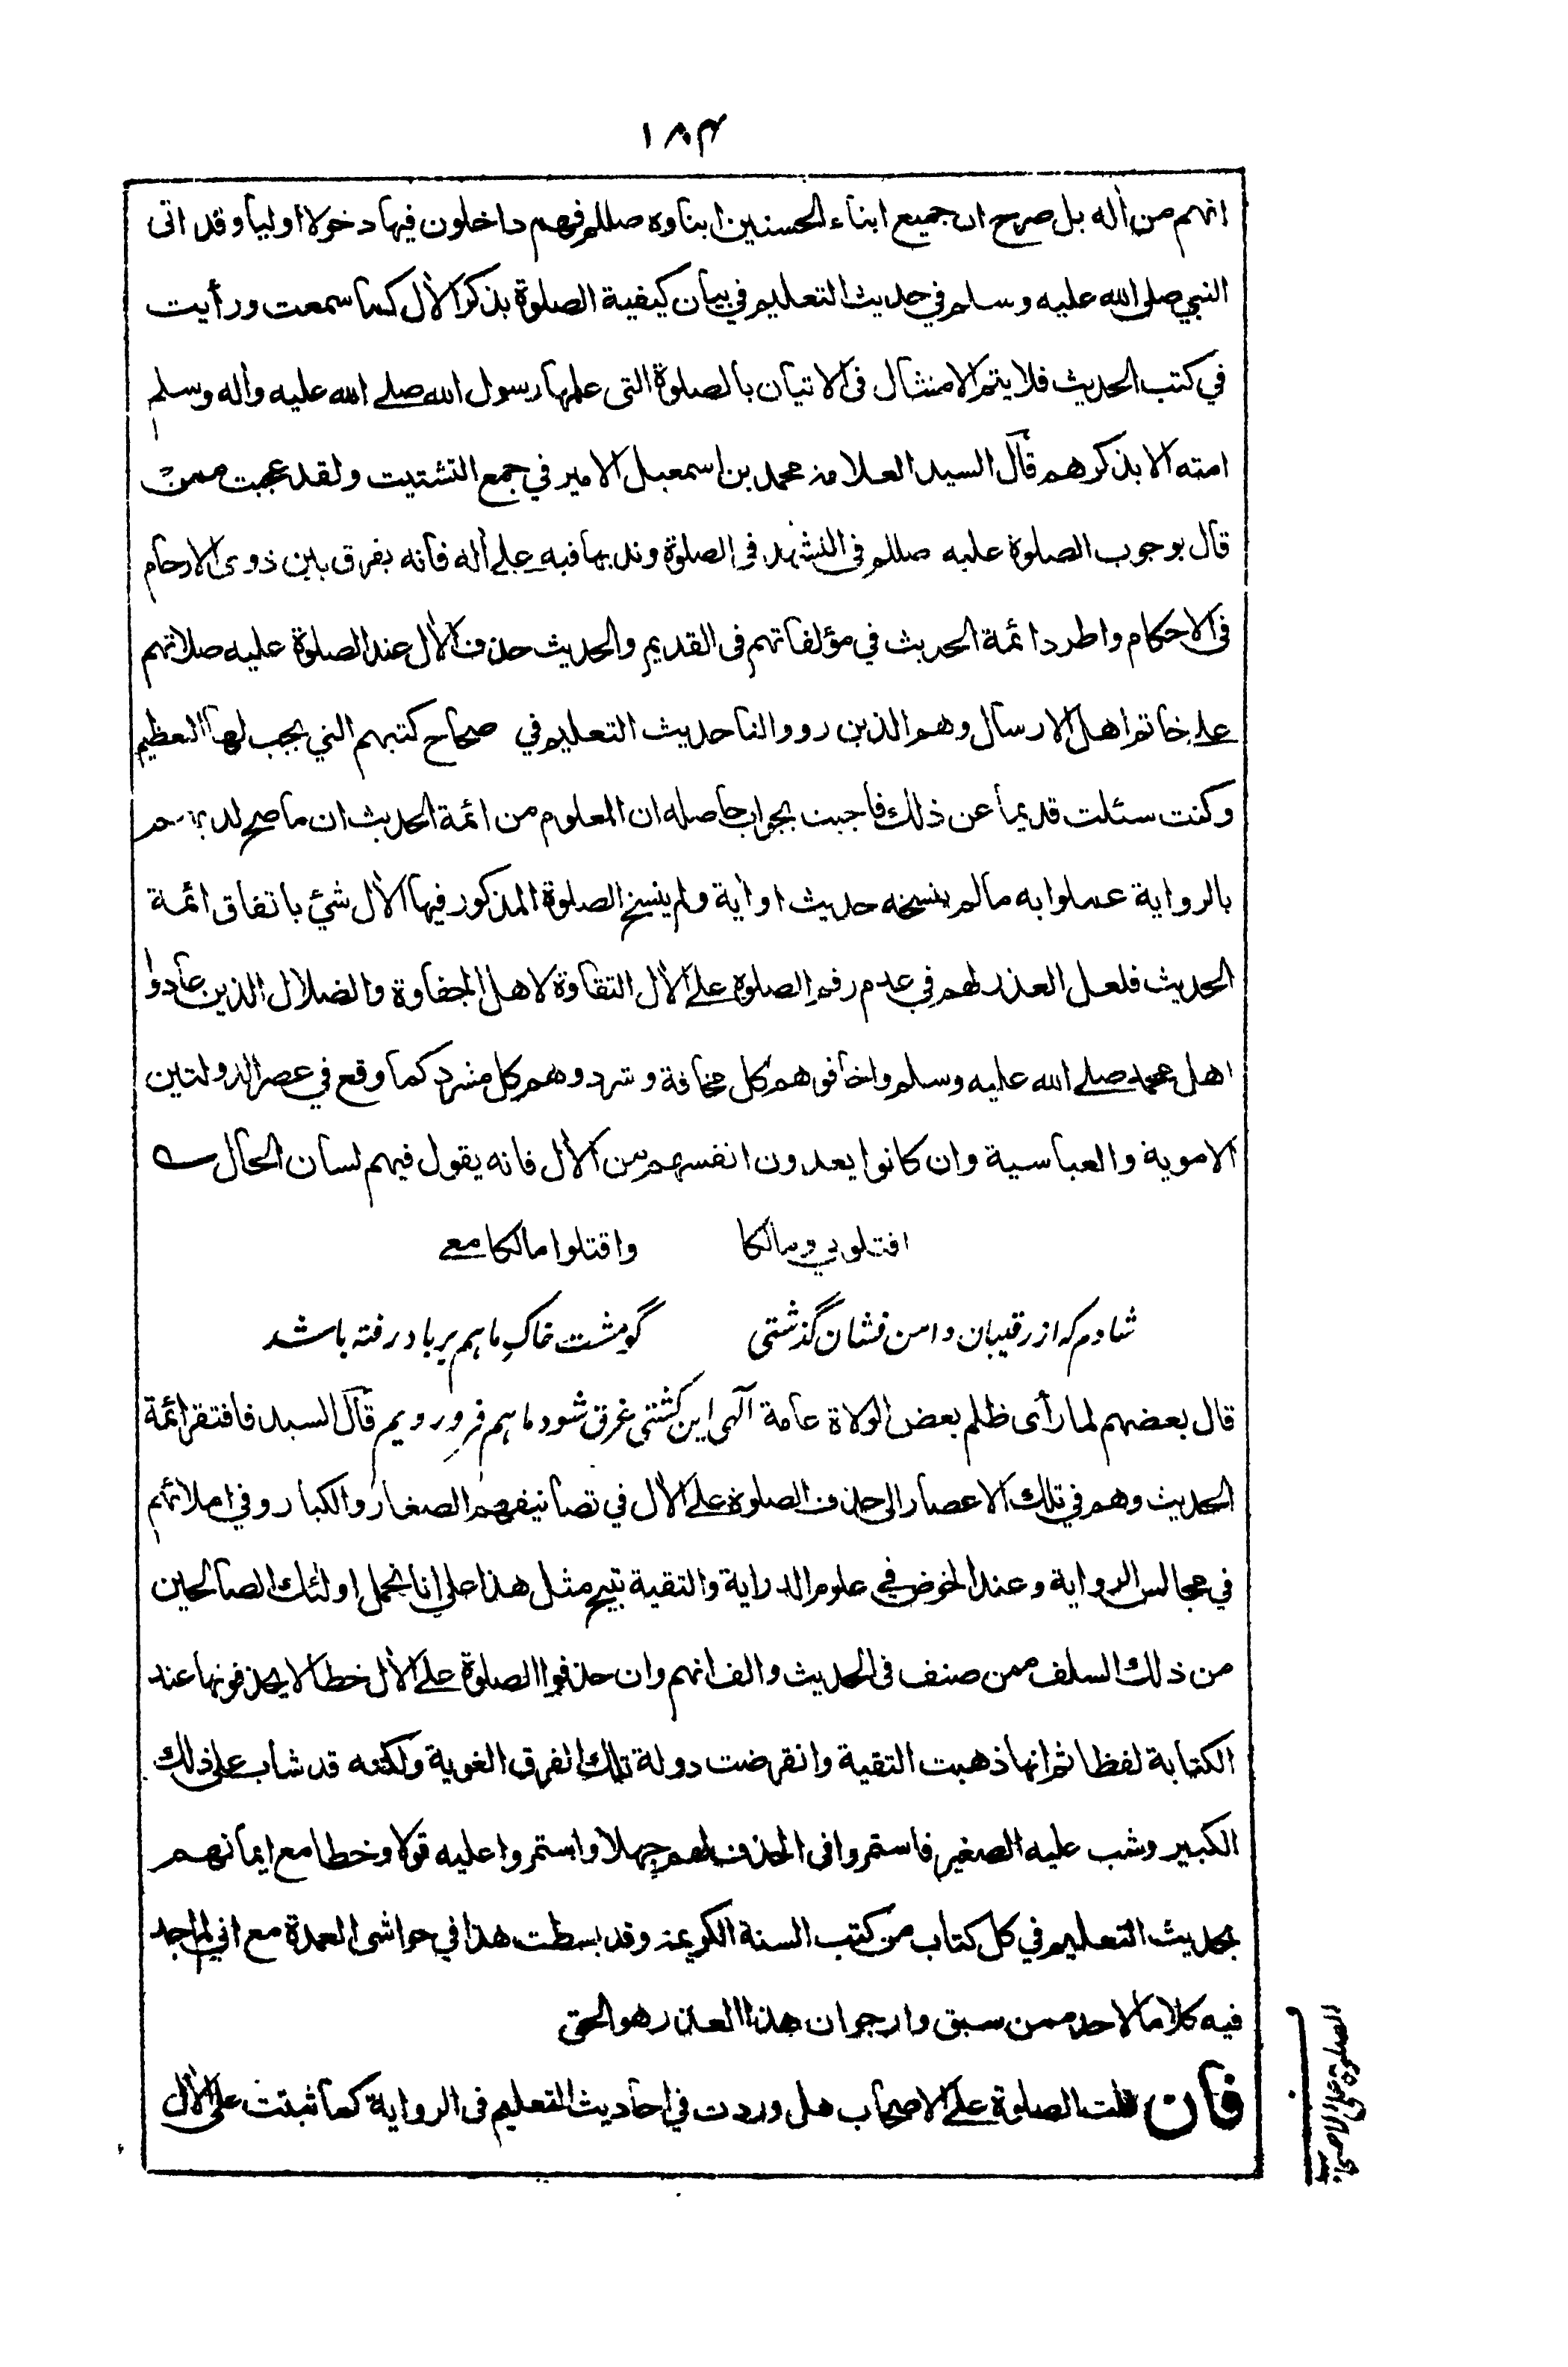 ١٨٣
انهم من اٰله بل صرح ان جميع ابناء الحسنين ابناوه صللم فهم داخلون فيها دخولا اوليا وقد اتى
النبي صلى الله عليه وسلم في حديث التعليم في بيان كيفية الصلوة بذكر الاٰل كما سمعت ورأيت
في كتب الحديث فلا يتم الامتثال فى الاتيان بالصلوة التى علمها رسول الله صلے الله عليه واٰله وسلم
امته الا بذكرهم قال السيد العلامة محمد بن اسمعيل الامير في جمع التشتيت ولقد عجبت ممن
قال بوجوب الصلوة عليه صللم فى التشهد فى الصلوة وندبها فيه علے اٰله فانه يفرق بين ذوى الارحام
فى الاحكام واطرد ائمة الحديث في مؤلفاتهم فى القديم والحديث حذف الاٰل عند الصلوة عليه صلاتهم
علے خاتم اهل الارسال وهم الذين رووا لنا حديث التعليم في صحاح كتبهم التي يجب لها التعظيم
وكنت سئلت قديما عن ذلك فاجبت بجواب حاصله ان المعلوم من ائمة الحديث ان ما صح لديهم
بالرواية عملوا به مالم ينسخه حديث او اٰية ولم ينسخ الصلوة المذكور فيها الاٰل شئ باتفاق ائمة
الحديث فلعل العذر لهم في عدم رقم الصلوة علے الاٰل التقاوة لاهل الجفاوة والضلال الذين عادوا
اهل محمد صلے الله عليه وسلم واخافوهم كل مخافة وشردوهم كل مشرد كما وقع في عصر الدولتين
الاموية والعباسية وان كانوا يعدون انفسهم من الاٰل فانه يقول فيهم لسان الحال
اقتلوني ومالكا واقتلوا مالكا معے
شادم که از رقیبان دامن فشان گذشتی گو مشت خاک ما هم بر باد رفته باشد
قال بعضهم لما رأى ظلم بعض الولاة عامة آلهی این کشتی غرق شود ما هم فرو رویم قال السيد فافتقر ائمة
الحديث وهم في تلك الاعصار الى حذف الصلوة علے الاٰل في تصانيفهم الصغار والكبار وفي املائهم
في مجالس الرواية وعند الخوض في علوم الدراية والتقية تبيح مثل هذا على انا نحمل اولئك الصالحين
من ذلك السلف ممن صنف فى الحديث والف انهم وان حذفوا الصلوة علے الاٰل خطا لا يحذفونها عند
الكتابة لفظا ثم انها ذهبت التقية وانقرضت دولة تلك الفرق الغوية ولكنه قد شاب على ذلك
الكبير وشب عليه الصغير فاستمروا فى الحذف لهم جهلا واستمروا عليه قولا وخطا مع ايمانهم
بحديث التعليم في كل كتاب من كتب السنة الكريمة وقد بسطت هذا في حواشى العمدة مع اني لم اجد
فيه كلاما لاحد ممن سبق وارجو ان هذا العذر هو الحق
فان قلت الصلوة علے الاصحاب هل وردت في احاديث التعليم فى الرواية كما ثبتت على الاٰل